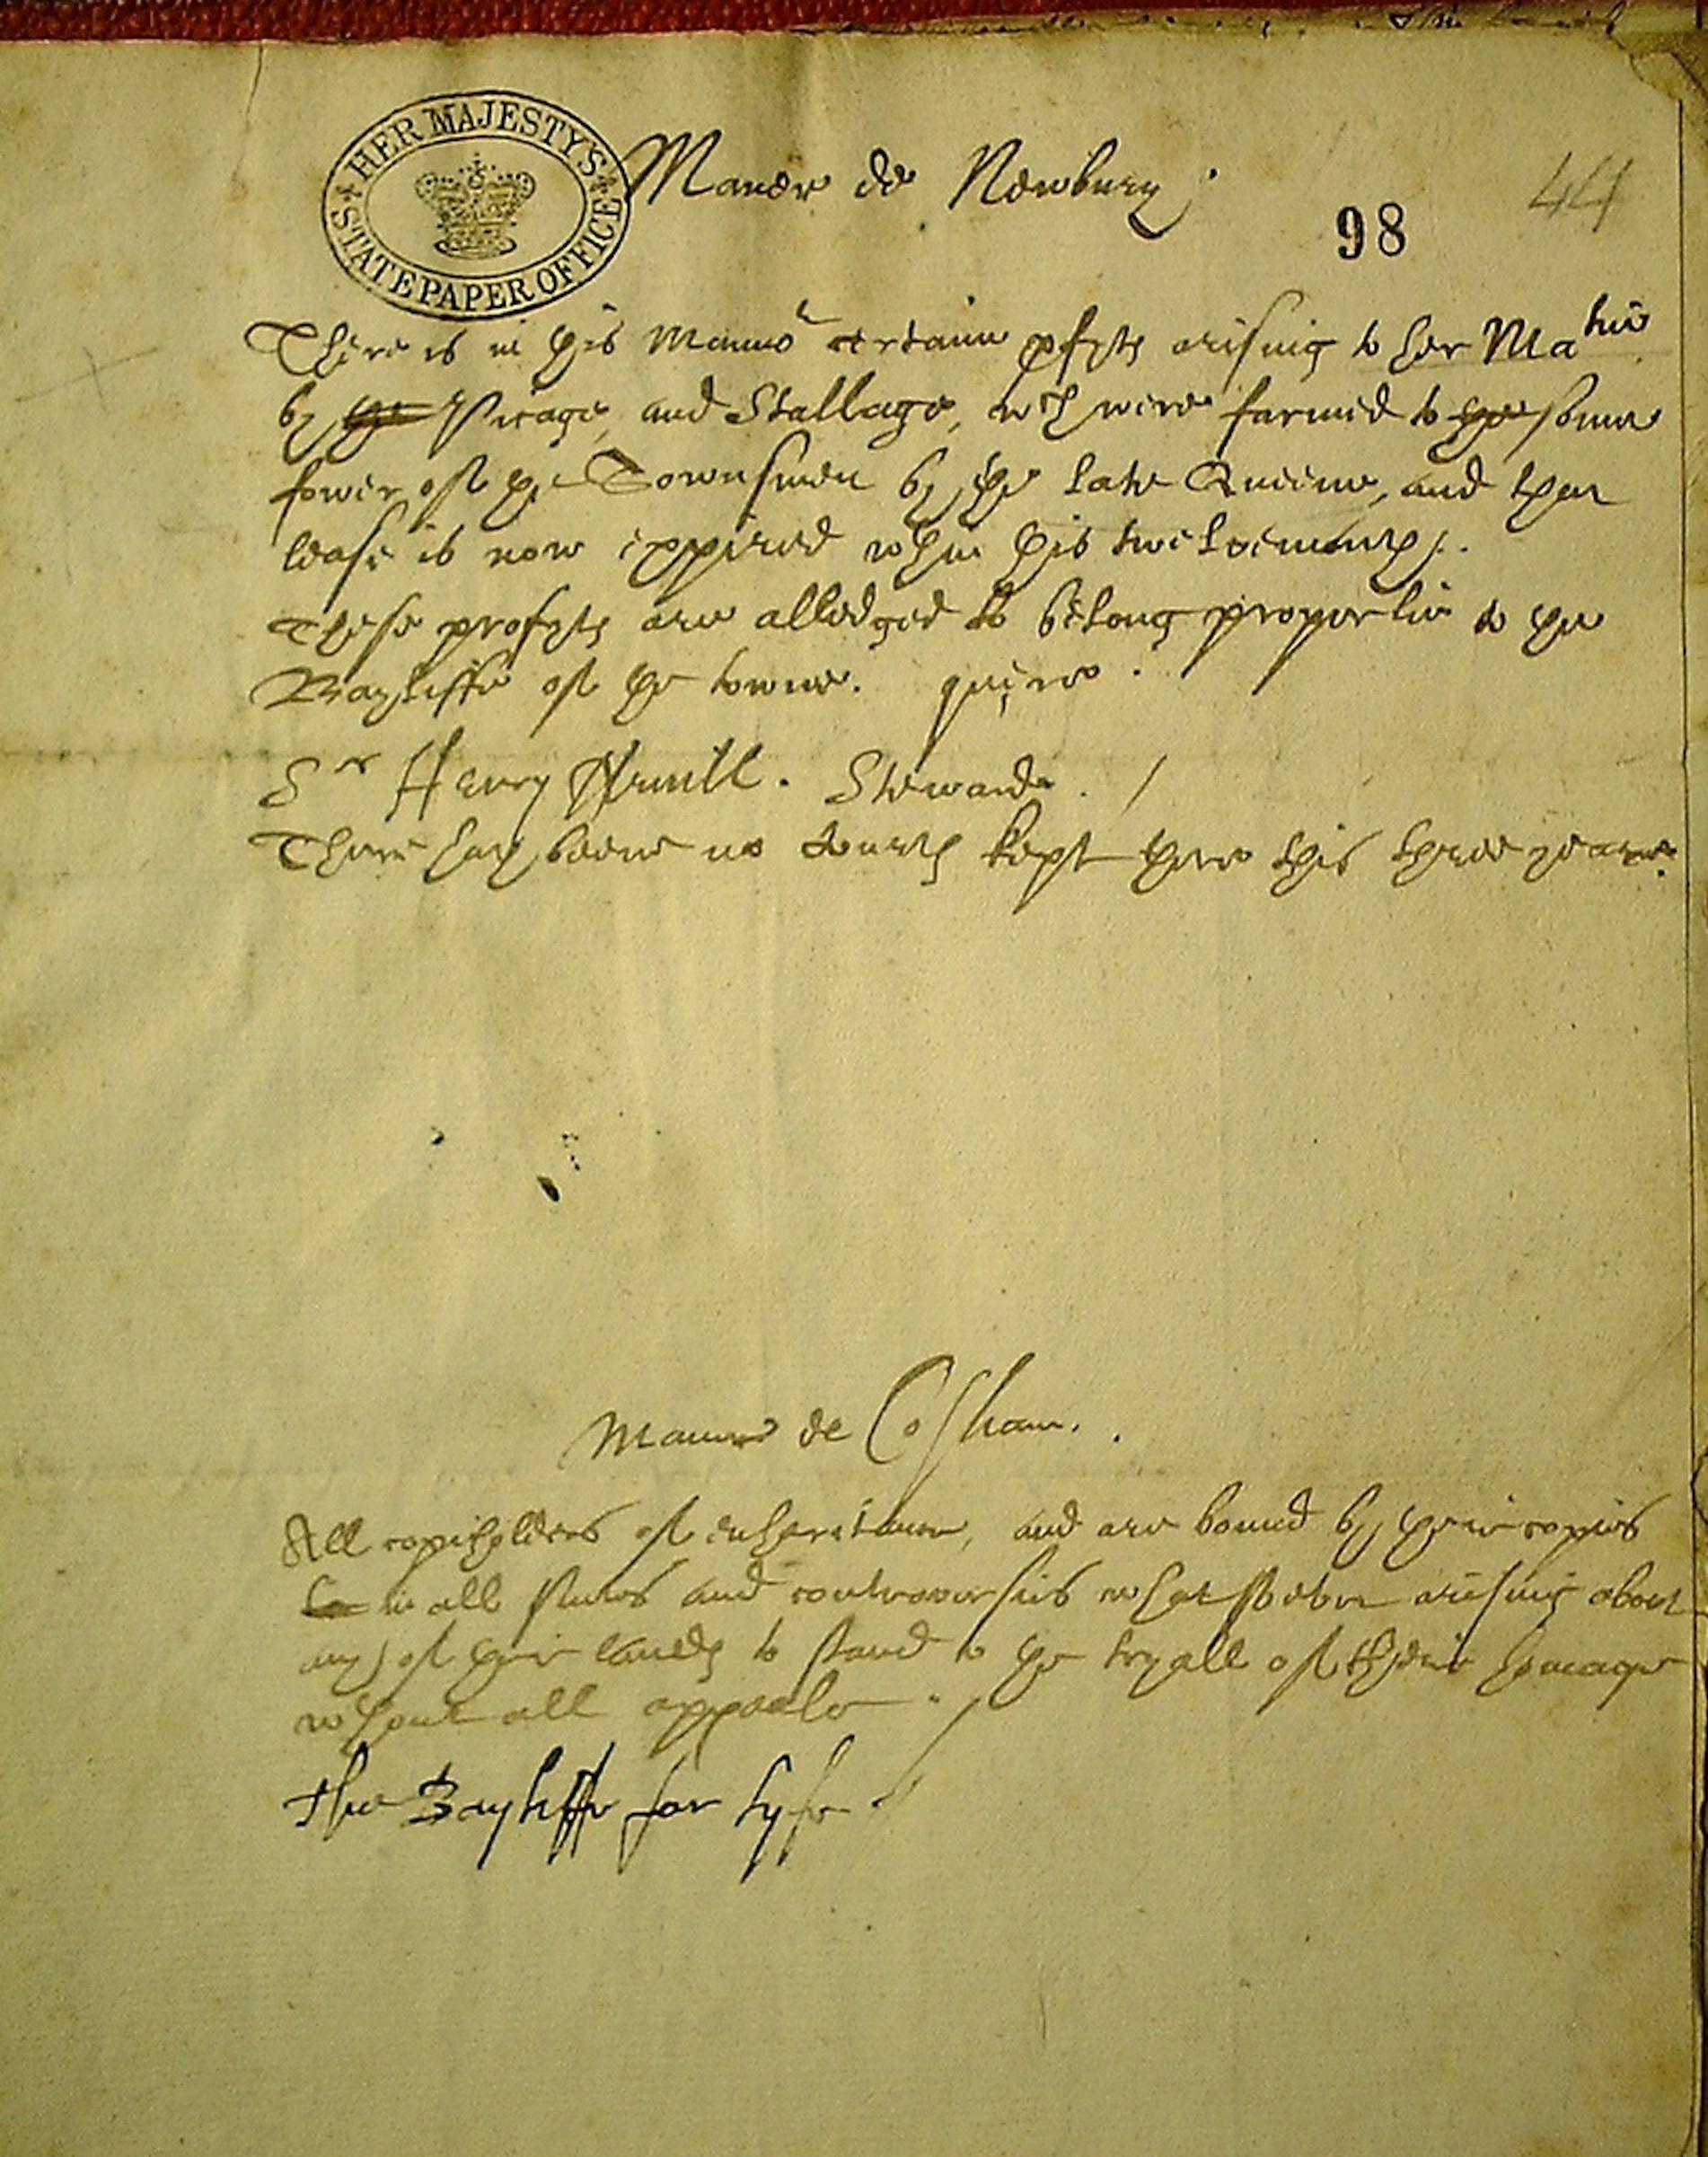 HER MAJESTY'S STATE PAPER OFFICE
Maner de Newbury
98
44
There is in this Mannor certaine pfyts arising to her Matie
by the Picage and Stallage, wch were farmed to the some
fower of ye Townsmen by the late Queene, and their
lease is now expired wthin this twelvemonth.
These profyts are alledged to belong properlie to the
Bayliffe of ye towne. quere.
Sr Henry Nevill. Steward. /
There hath beene no Courts kept there this three yeares.
Manner de Cosham.
All copiholders of inheritance, and are bound by their copies
in all sutes and controversies whatsoever arising about
any of their Lands to stand to ye tryall of their homage
without all appeale.
The Bayliffe for lyfe